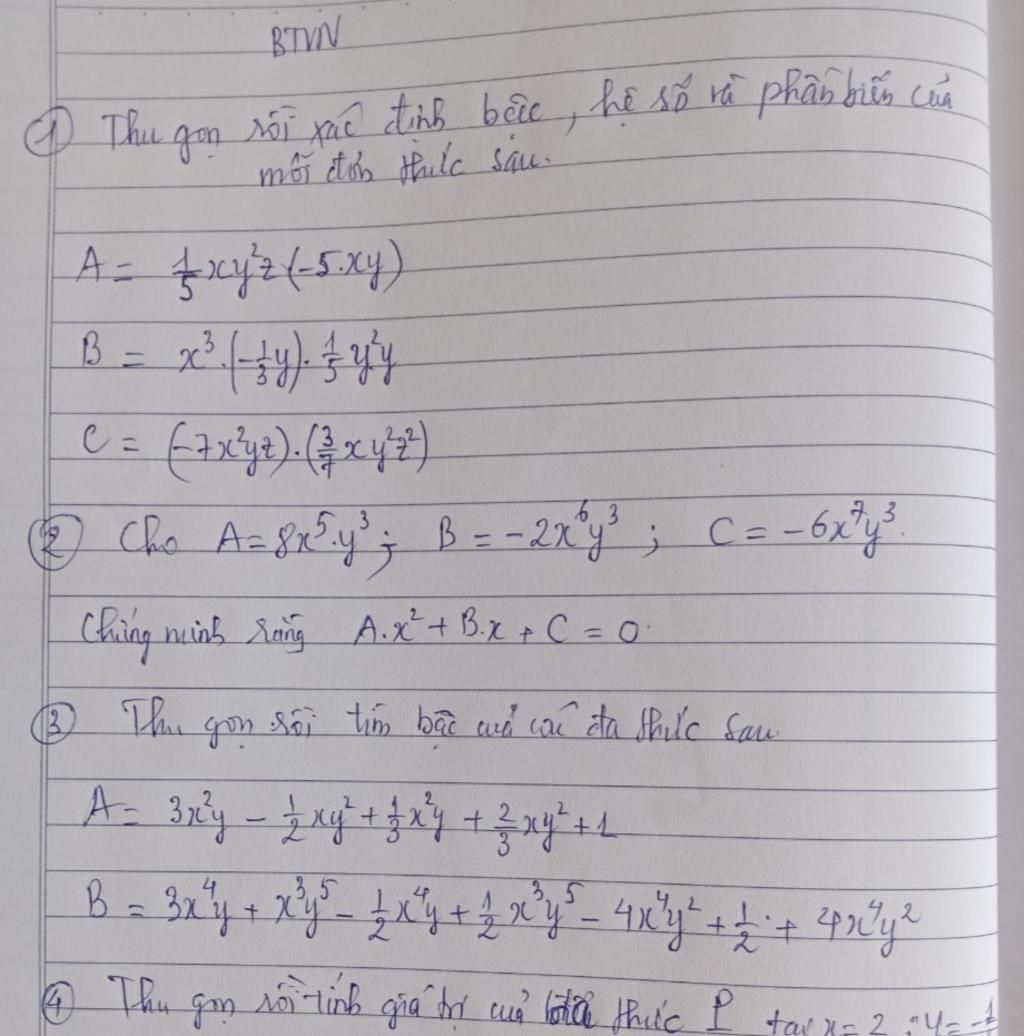 BTVN
① Thu gọn rồi xác định bậc, hệ số và phần biến của
mỗi đơn thức sau.
A = 1/5 xy²z (-5.xy)
B = x³.(-1/3 y). 1/5 y²y
C = (-7x²yz).(3/7 xy²z²)
② Cho A = 8x⁵.y³; B = -2x⁶y³; C = -6x⁷y³.
Chứng minh rằng A.x² + B.x + C = 0.
③ Thu gọn rồi tìm bậc của các đa thức sau
A = 3x²y - 1/2 xy² + 1/3 x²y + 2/3 xy² + 1
B = 3x⁴y + x³y⁵ - 1/2 x⁴y + 1/2 x³y⁵ - 4x⁴y² + 1/2 + 4x⁴y²
④ Thu gọn rồi tính giá trị của thức P tại x = 2, y =